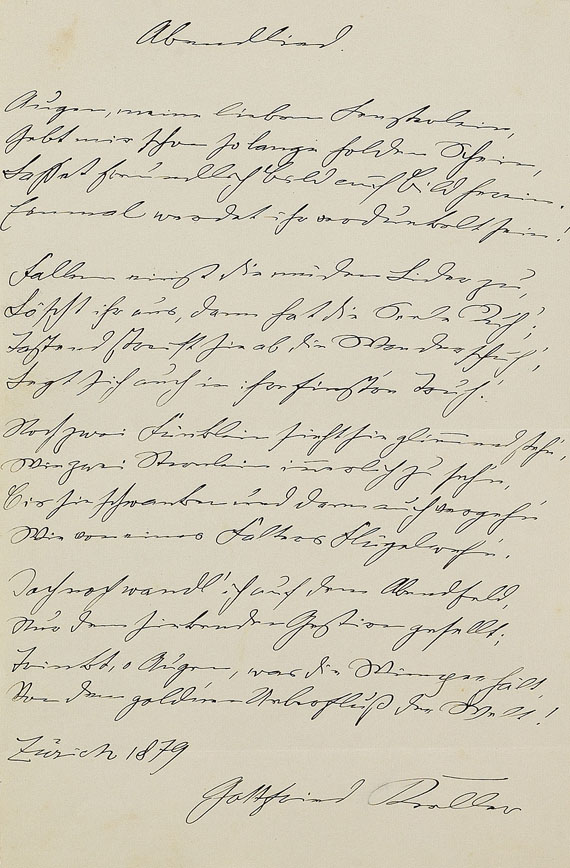 Abendlied.
Augen, meine lieben Fensterlein,
Gebt mir schon so lange holden Schein,
Lasset freundlich Bild auf Bild herein.
Einmal werdet ihr verdunkelt sein!
Fallen einst die müden Lider zu,
Löscht ihr aus, dann hat die Seele Ruh';
Tastend streift sie ab die Wanderschuh',
Legt sich auch in ihre finst're Truh'.
Noch zwei Fünklein sieht sie glimmend steh'n,
Wie zwei Sternlein innerlich zu seh'n,
Bis sie schwanken und dann auch vergeh'n
Wie von eines Falters Flügelweh'n.
Doch noch wandl' ich auf dem Abendfeld,
Nur dem sinkenden Gestirn gesellt;
Trinkt, o Augen, was die Wimper hält,
Von dem gold'nen Ueberfluß der Welt!
Zürich 1879
Gottfried Keller